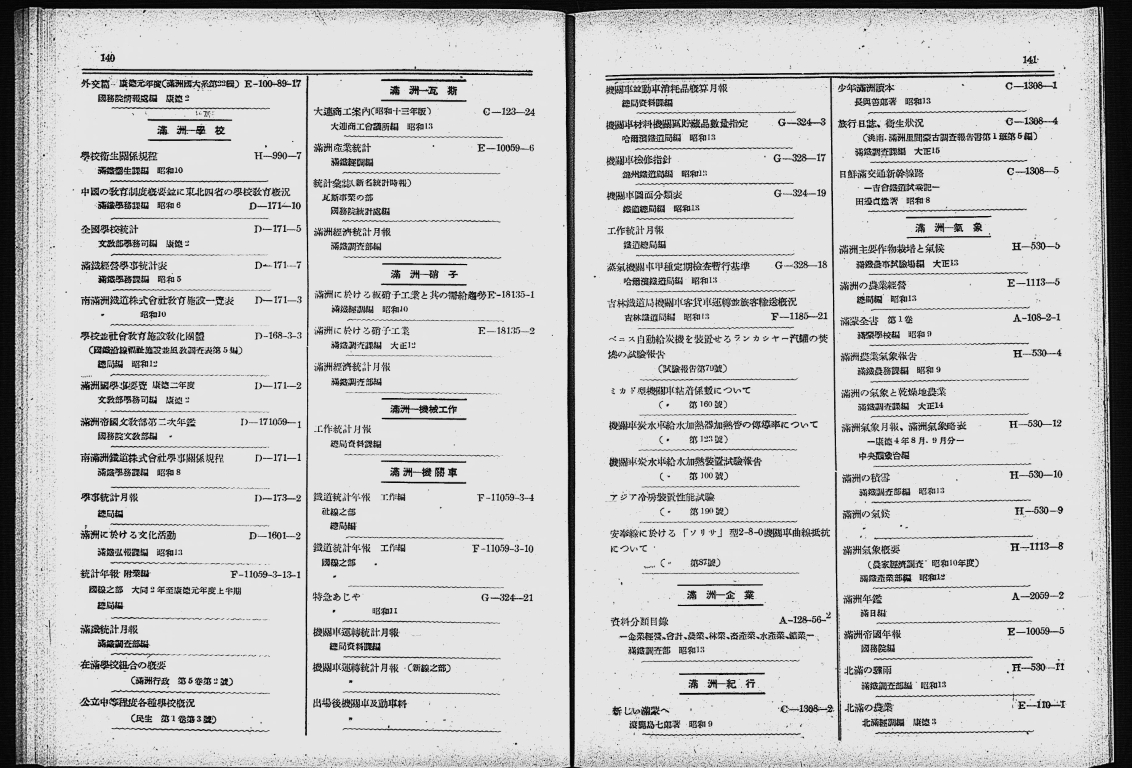 140
外交篇 康德元年度(滿洲國大系第22輯) E-100-89-17
國務院情報處編 康德2
滿洲—學校
學校衛生關係規程 H—990—7
滿鐵衛生課編 昭和10
中國の敎育制度槪要並に東北四省の學校敎育槪況
滿鐵學務課編 昭和6 D—171—10
全國學校統計 D—171—5
文敎部學務司編 康德2
滿鐵經營學事統計表 D—171—7
滿鐵學務課編 昭和5
南滿洲鐵道株式會社敎育施設一覽表 D—171—3
〃 昭和10
學校並社會敎育施設敎化團體 D-168-3-3
(國鐵沿線福祉施設並風敎調査表第5編)
總局編 昭和12
滿洲國學事要覽 康德二年度 D—171—2
文敎部學務司編 康德2
滿洲帝國文敎部第二次年鑑 D—171059—1
國務院文敎部編
南滿洲鐵道株式會社學事關係規程 D—171—1
滿鐵學務課編 昭和8
學事統計月報 D—173—2
總局編
滿洲に於ける文化活動 D—1601—2
滿鐵弘報課編 昭和13
統計年報 附業編 F-11059-3-13-1
國線之部 大同2年至康德元年度上半期
總局編
滿鐵統計月報
滿鐵調査部編
在滿學校組合の槪要
(滿洲行政 第5卷第2號)
公立中等程度各種學校槪況
(民生 第1卷第3號)
滿洲—瓦斯
大連商工案內(昭和十三年版) C—123—24
大連商工會議所編 昭和13
滿洲產業統計 E—10059—6
滿鐵經調編
統計彙誌(新名統計時報)
瓦斯事業の部
國務院統計處編
滿洲經濟統計月報
滿鐵調査部編
滿洲—硝子
滿洲に於ける板硝子工業と其の需給趨勢 E-18135-1
滿鐵經調編 昭和10
滿洲に於ける硝子工業 E—18135—2
滿鐵調査課編 大正12
滿洲經濟統計月報
滿鐵調査部編
滿洲—機械工作
工作統計月報
總局資料課編
滿洲—機關車
鐵道統計年報 工作編 F-11059-3-4
社線之部
總局編
鐵道統計年報 工作編 F-11059-3-10
國線之部
〃
特急あじや G—324—21
〃 昭和11
機關車運轉統計月報
總局資料課編
機關車運轉統計月報 (新線之部)
〃
出場後機關車及動車料
〃
141
機關車並動車消耗品槪算月報
總局資料課編
機關車材料機關區貯藏品數量指定 G—324—3
哈爾濱鐵道局編 昭和13
機關車檢修指針 G—328—17
錦州鐵道局編 昭和13
機關車圖面分類表 G—324—19
鐵道總局編 昭和13
工作統計月報
鐵道總局編
蒸氣機關車甲種定期檢査暫行基準 G—328—18
哈爾濱鐵道局編 昭和13
吉林鐵道局機關車客貨車運轉並旅客輸送槪況
吉林鐵道局編 昭和13 F—1185—21
ベニス自動給炭機を裝置せるランカシャー汽罐の焚
燒の試驗報告
(試驗報告第79號)
ミカド型機關車粘着係數について
(〃 第160號)
機關車炭水車給水加熱器加熱管の傳導率について
(〃 第123號)
機關車炭水車給水加熱裝置試驗報告
(〃 第100號)
アジア冷房裝置性能試驗
(〃 第190號)
安奉線に於ける「ソリサ」型2-8-0機關車曲線抵抗
について
(〃 第87號)
滿洲—企業
資料分類目錄 A-128-56-2
—企業經營、會計、農業、林業、畜產業、水產業、鑛業—
滿鐵調査部 昭和13
滿洲—紀行
新しい滿蒙へ C—1308—2
濱興島七郞著 昭和9
少年滿洲讀本 C—1308—1
長與善郞著 昭和13
旅行日誌、衛生狀況 C—1308—4
(洮南、滿洲里間蒙古調査報告書第1班第5編)
滿鐵調査課編 大正15
日鮮滿交通新幹線路 C—1308—5
—吉會鐵道試乘記—
田邊貞鑑著 昭和8
滿洲—氣象
滿洲主要作物栽培と氣候 H—530—5
滿鐵農事試驗場編 大正13
滿洲の農業經營 E—1113—5
總局編 昭和13
滿蒙全書 第1卷 A-108-2-1
滿蒙學校編 昭和9
滿洲農業氣象報告 H—530—4
滿鐵農務課編 昭和9
滿洲の氣象と乾燥地農業
滿鐵調査課編 大正14
滿洲氣象月報、滿洲氣象略表 H—530—12
—康德4年8月、9月分—
中央觀象台編
滿洲の積雪 H—530—10
滿鐵調査部編 昭和13
滿洲の氣候 H—530—9
滿洲氣象槪要 H—1113—8
(農家經濟調査 昭和10年度)
滿鐵產業部編 昭和12
滿洲年鑑 A—2059—2
滿日編
滿洲帝國年報 E—10059—5
國務院編
北滿の驟雨 H—530—11
滿鐵調査部編 昭和13
北滿の農業 E—110—1
北滿經調編 康德3